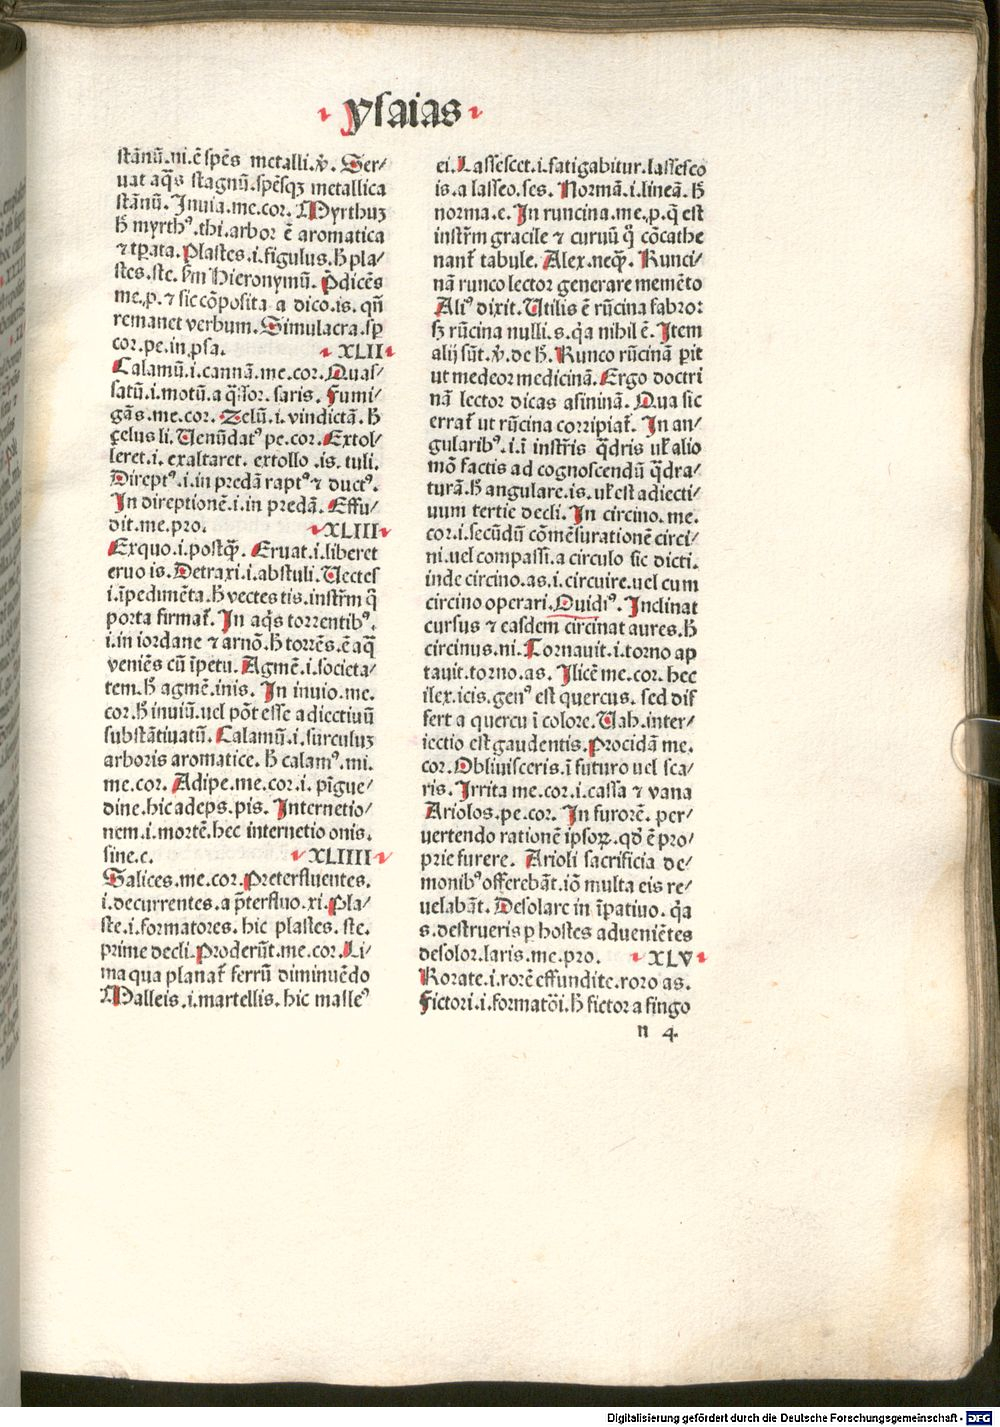 ysaias
stānū.ni.ē spēs metalli.v̄. Ser/
uat aq̄s stagnū.spēsqꝫ metallica
stānū. Inuia.me.cor. Myrthuꝫ
ħ myrthꝰ.thi.arbor ē aromatica
⁊ tꝑata. Plastes.i.figulus.ħ pla/
stes.ste. ẜm Hieronymū. P̄dicēs
me.p. ⁊ sic cōposita a dico.is. qn̄
remanet verbum. Simulacra.sꝑ
cor.pe.in psa. XLII
Calamū.i.cannā.me.cor. Quas/
satū.i.motū.a q̄ssor.saris. Fumi/
gās.me.cor. Zelū.i.vindictā. ħ
çelus li. Uenūdatꝰ pe.cor. Extol/
leret.i.exaltaret. extollo .is. tuli.
Direptꝰ.i.in predā raptꝰ ⁊ ductꝰ.
In direptionē.i.in predā. Effu/
dit.me.pro. XLIII
Exquo.i.postq̄ꝫ. Eruat.i.liberet
eruo is. Detraxi.i.abstuli. Uectes
i.īpedimēta.ħ vectes tis.instr̄m q̄
porta firmat̄. In aq̄s torrentibꝰ.
i.in iordane ⁊ arnō.ħ torrēs.ē aq̄
veniēs cū īpetu. Agmē.i.societa/
tem.ħ agmē.inis. In inuio.me.
cor.ħ inuiū.uel pōt esse adiectiuū
substātiuatū. Calamū.i.surculuꝫ
arboris aromatice. ħ calamꝰ.mi.
me.cor. Adipe.me.cor.i. pīgue/
dine.hic adeps.pis. Internetio/
nem.i.mortē.hec internetio onis.
sine.c. XLIIII
Salices.me.cor.Preterfluentes.
i.decurrentes.a p̄terfluo.xi.Pla/
ste.i.formatores. hic plastes. ste.
prime decli.Proderūt.me.cor.Li/
ma qua planat̄ ferrū diminuēdo
Malleis.i.martellis.hic malleꝰ
ei. Lassescet.i.fatigabitur.lassesco
is.a lasseo.ses. Normā.i.lineā. ħ
norma.e. In runcina.me.p.q̄ est
instr̄m gracile ⁊ curuū q̄ cōcathe
nant̄ tabule. Alex.neqꝫ. Runci/
nā runco lector generare memēto
Aliꝰ dixit. Utilis ē rūcina fabroꝛ
sꝫ rūcina nulli.s.q̄a nihil ē. Item
alij sūt.v̄.de ħ. Runco rūcinā ꝑit
ut medeor medicinā. Ergo doctri
nā lector dicas asininā. Qua sic
errat̄ ut rūcina corripiat̄. In an/
gularibꝰ.i.ī instr̄is q̄dris uł alio
mō factis ad cognoscendū q̄dra/
turā.ħ angulare.is.uł est adiecti/
uum tertie decli. In circino. me.
cor.i.secūdū cōmēsurationē circi/
ni.uel compassi.a circulo sic dicti.
inde circino.as.i.circuire.uel cum
circino operari.Ouidiꝰ. Inclinat
cursus ⁊ easdem circinat aures.ħ
circinus.ni. Tornauit.i.torno ap
tauit.torno.as. Ilicē me.cor.hec
ilex.icis.genꝰ est quercus. sed dif
fert a quercu ī colore. Uah.inter/
iectio est gaudentis. Procidā me.
cor. Obliuisceris.ī futuro uel sca/
ris. Irrita me.cor.i.cassa ⁊ vana
Ariolos.pe.cor. In furorē. per/
uertendo rationē ipsoꝝ. qđ ē pro/
prie furere. Arioli sacrificia de/
monibꝰ offerebāt.iō multa eis re/
uelabāt. Desolare in īpatiuo. q̄a
s.destrueris ꝑ hostes aduenietēs
desolor.laris.me.pro. XLV
Rorate.i.rorē effundite.roro as.
Fictori.i.formatōi.ħ fictor a fingo
n 4
Digitalisierung gefördert durch die Deutsche Forschungsgemeinschaft - DFG